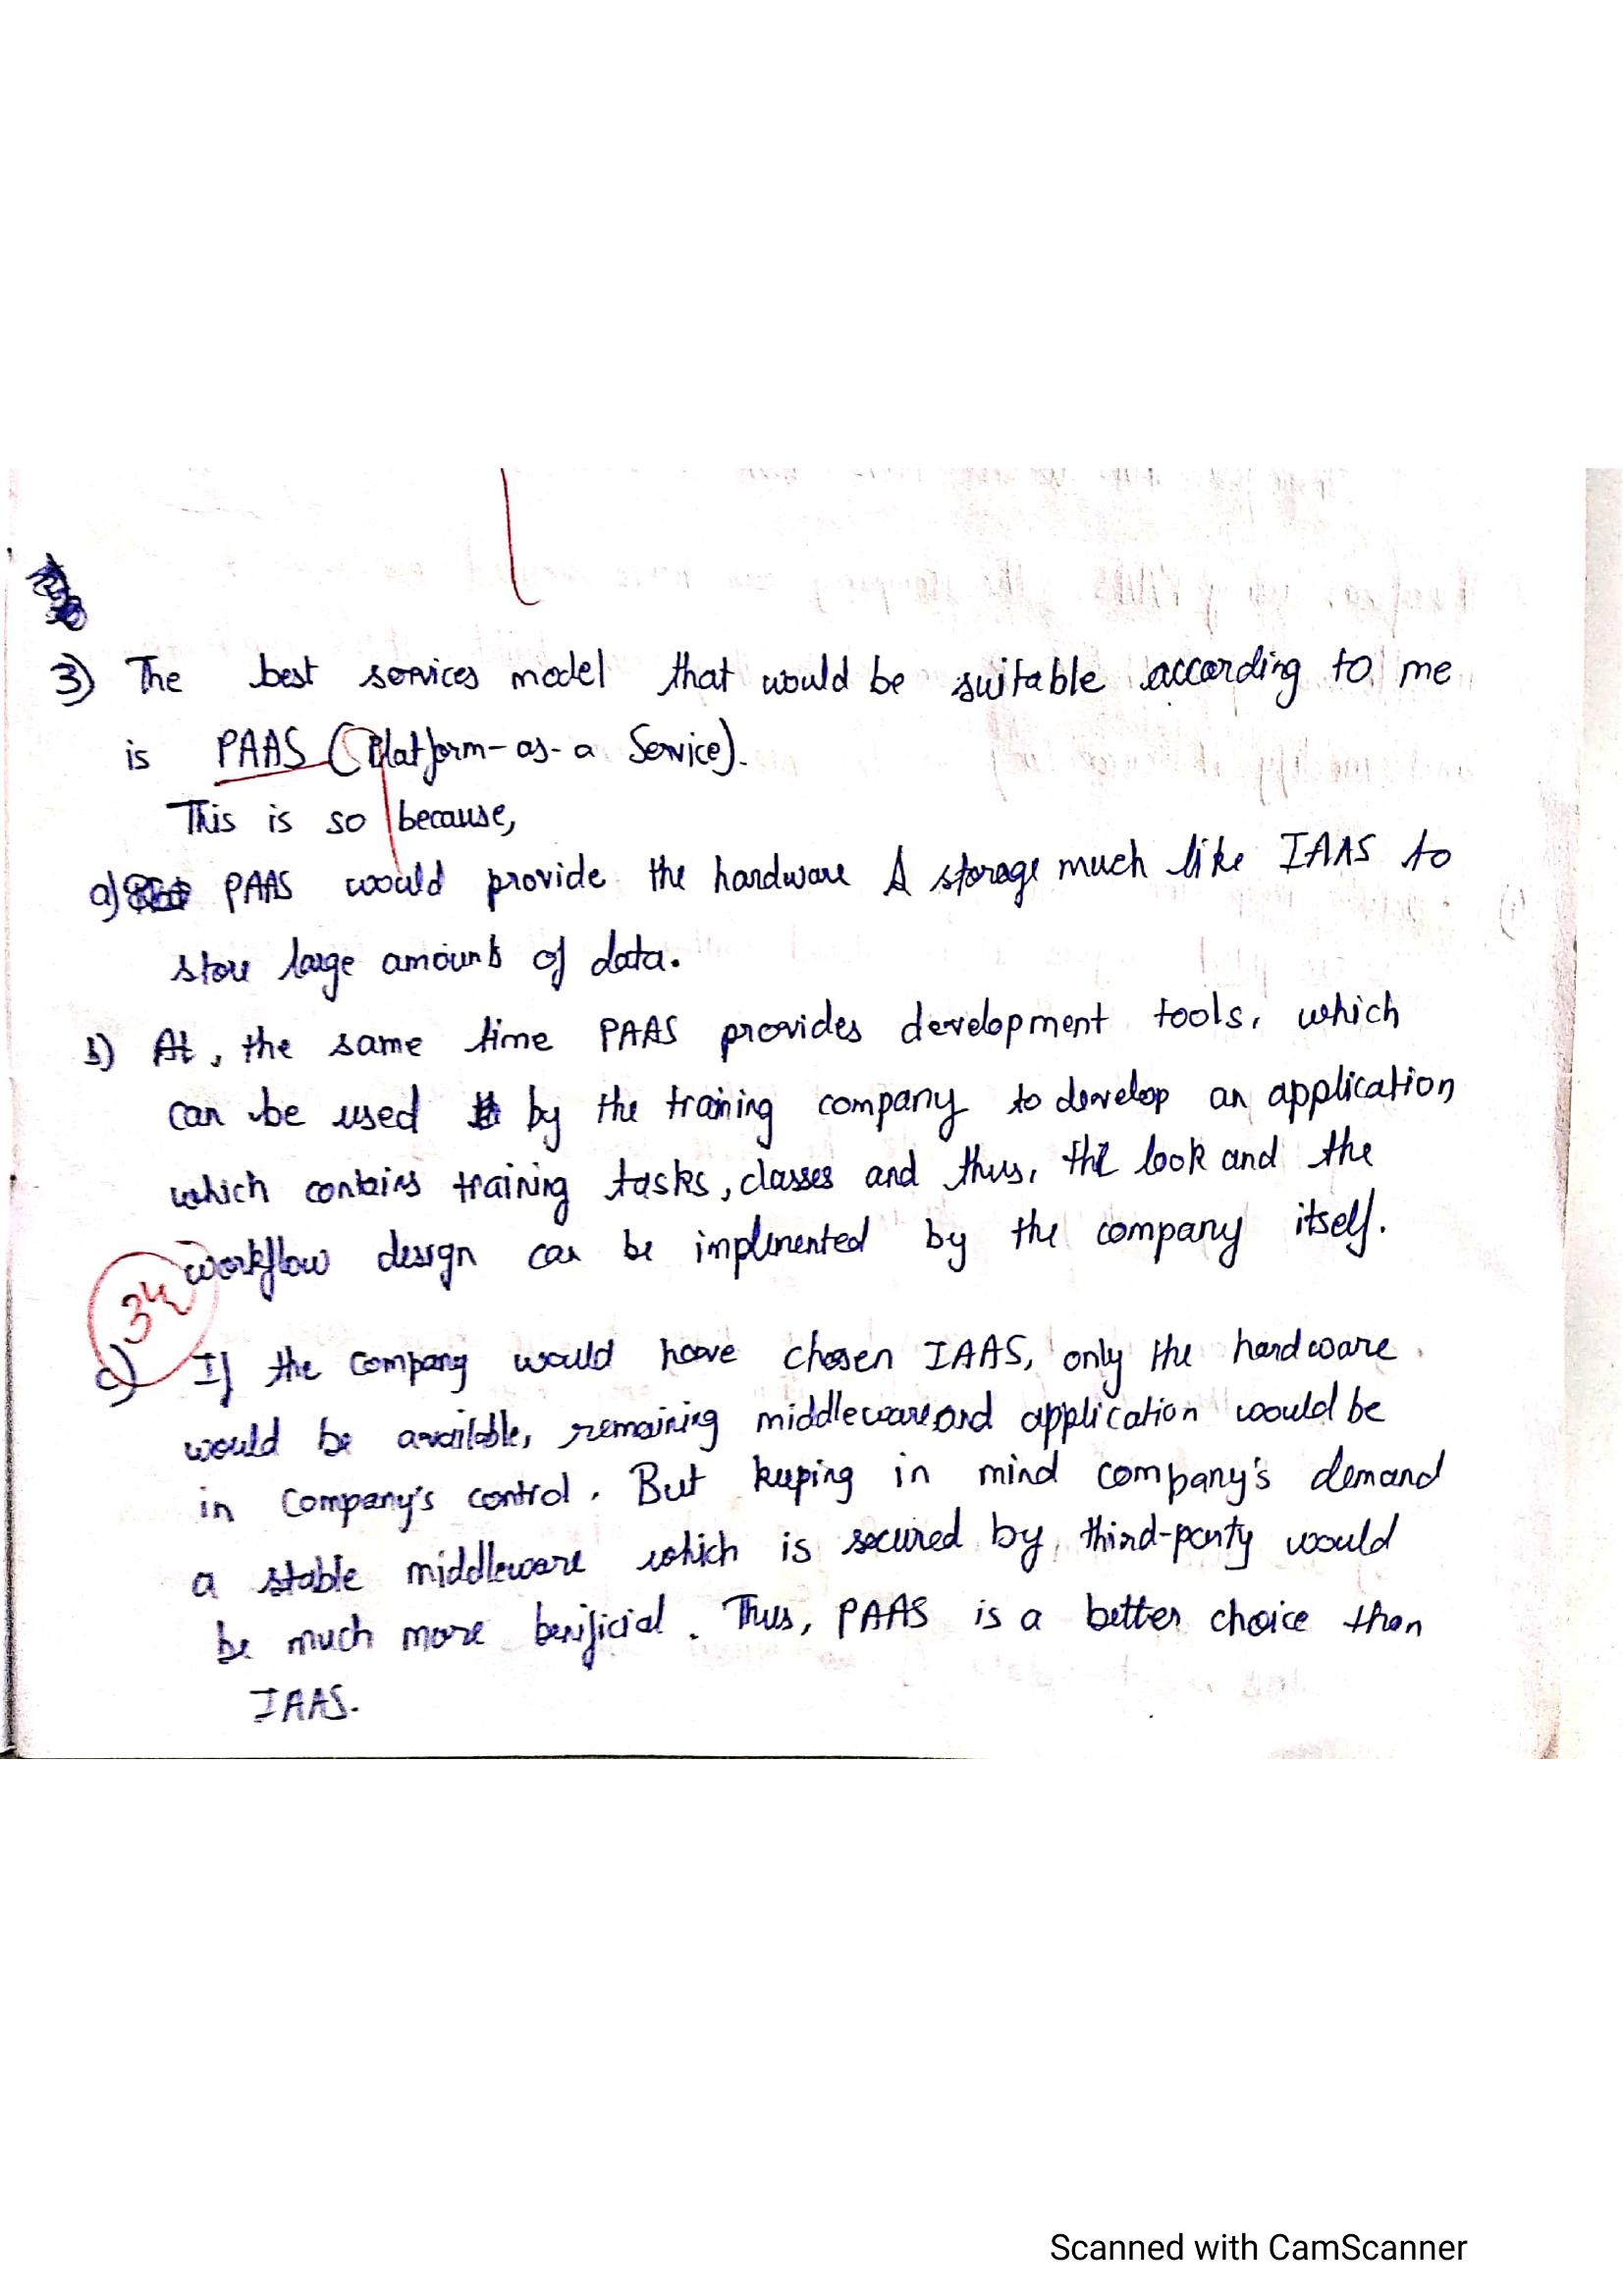 3) The best services model that would be suitable according to me
is PAAS (Platform-as-a Service).
This is so because,
a) PAAS would provide the hardware & storage much like IAAS to
store large amounts of data.
b) At, the same time PAAS provides development tools, which
can be used by the training company to develop an application
which contains training tasks, classes and thus, the look and the
workflow design can be implmented by the company itself.
3½
c) If the company would have chosen IAAS, only the hardware
would be available, remaining middleware and application would be
in Company's control. But keeping in mind company's demand
a stable middleware which is secured by third-party would
be much more benificial. Thus, PAAS is a better choice than
IAAS.
Scanned with CamScanner